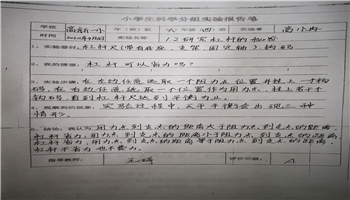 小学生科学分组实验报告单
学校
年(班) 六年四班
实验者
时间
实验名称 12研究杠杆的秘密
1、实验器材:杠杆尺(带有底座、支架、固定轴)、钩码
2、我的猜想:杠杆可以省力吗?
3、实验步骤:在左边任意选取一个阻力点位置并挂上一个钩码,在右边任意选取一个位置作为用力点,挂上若干个
钩码,直到杠杆尺达到平衡为止。
4、观察到的现象:实验过程中,天平平衡会出现三种
情形。
5、结论:我认为用力点到支点的距离大于阻力点到支点的距离,
杠杆省力;用力点到支点的距离小于阻力点到支点的距离,
杠杆费力;用力点到支点的距离等于阻力点到支点的距离,
杠杆不省力也不费力。
指导教师
评价等级 A